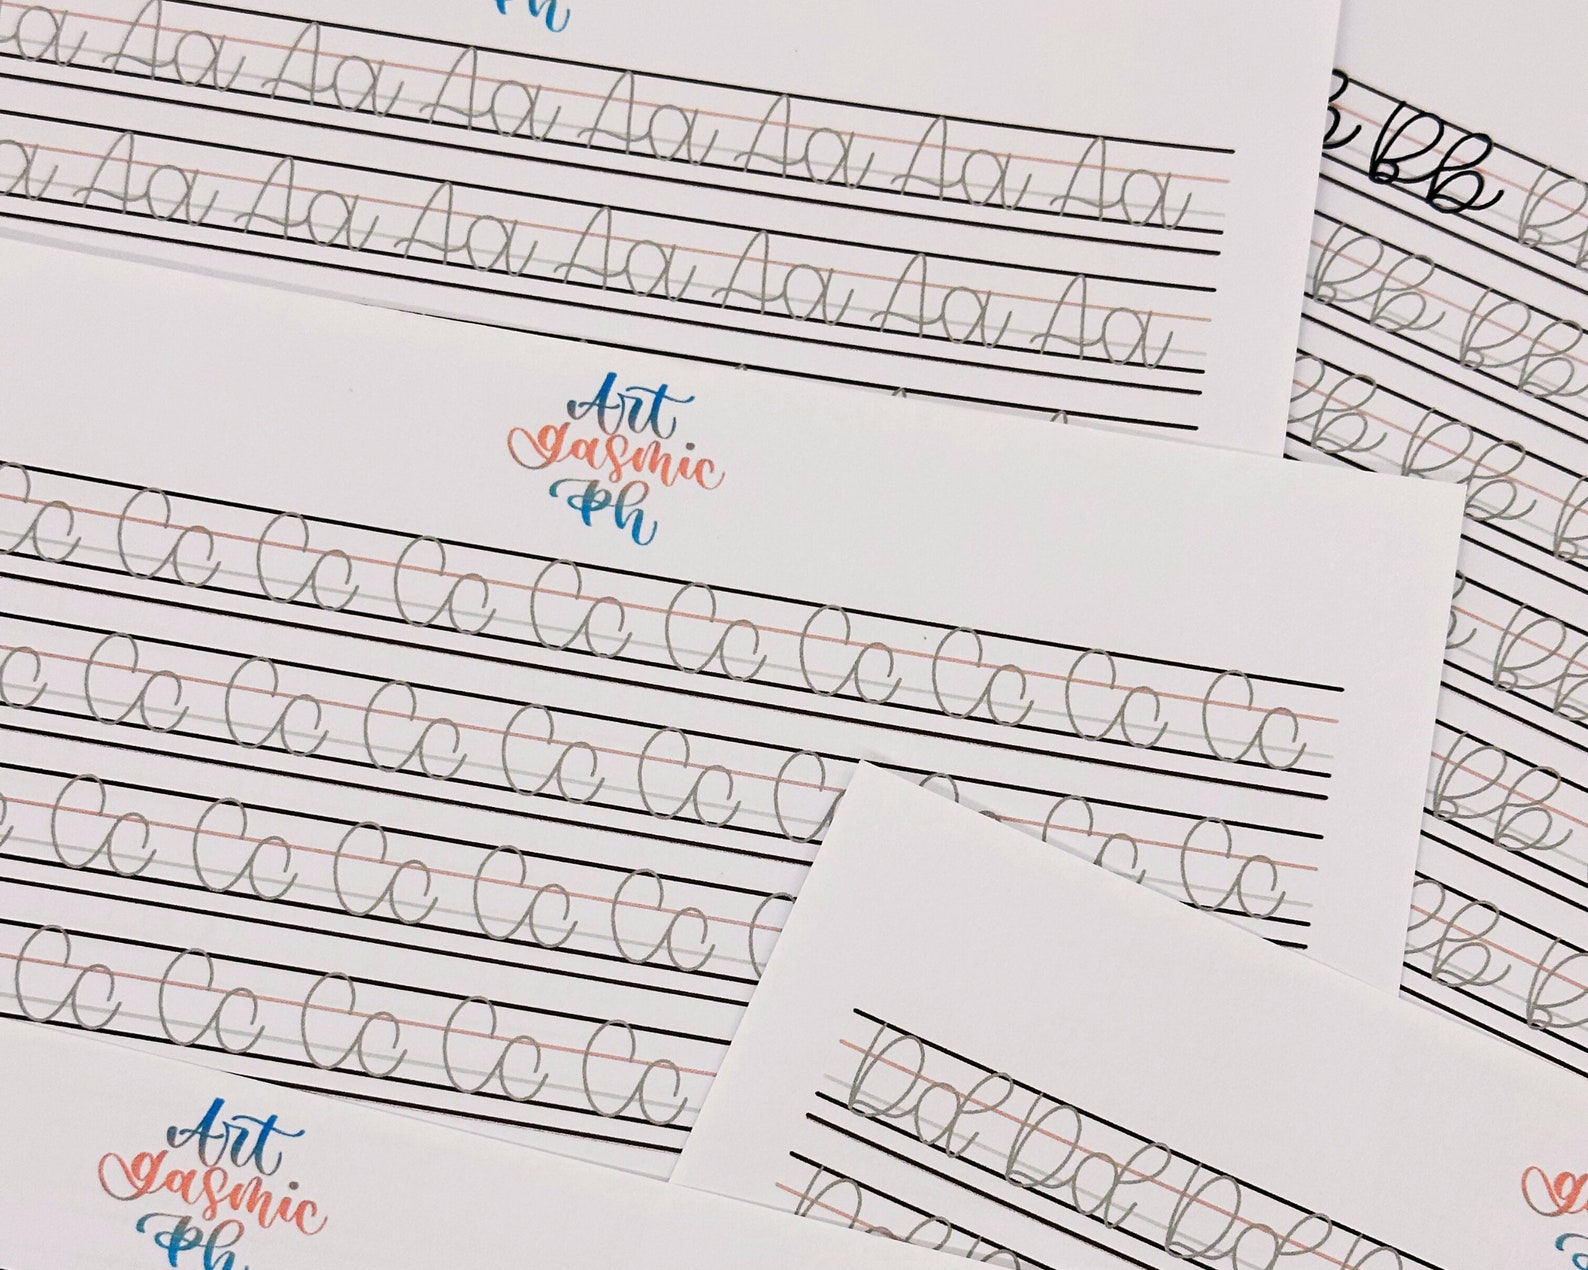 Ph
a Aa Aa Aa Aa Aa Aa Aa
a Aa Aa Aa Aa Aa Aa Aa
b Bb B
Bb Bb
Bb Bb B
b Bb
Bb
Bb B
Art
gasmic
Ph
Cc Cc Cc Cc Cc Cc Cc Cc Cc Cc
c Cc Cc Cc Cc Cc Cc Cc Cc
Cc Cc Cc Cc Cc C
Cc Cc Cc Cc Cc
Art
gasmic
Ph
Dd Dd Dd D
Dd